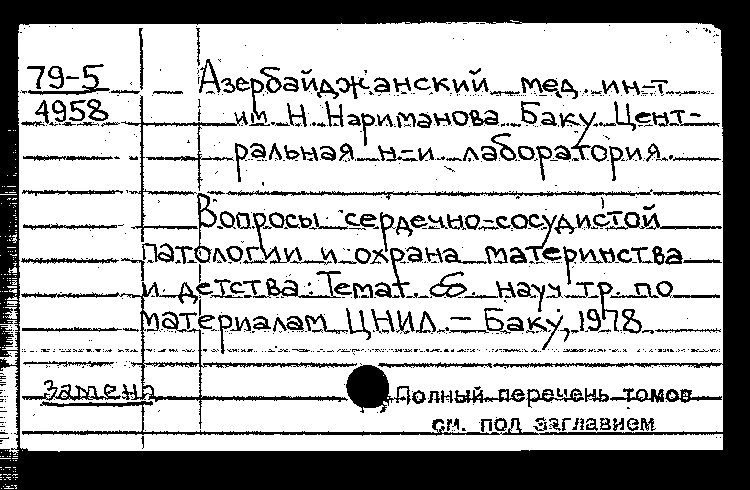 79-5
4958
Азербайджанский мед. ин-т
им. Н. Нариманова. Баку. Цент-
ральная н-и. лаборатория.
Вопросы сердечно-сосудистой
патологии и охрана материнства
и детства: Темат. сб. науч. тр. по
материалам ЦНИЛ. — Баку, 1978.
замена
Полный перечень томов
см. под заглавием